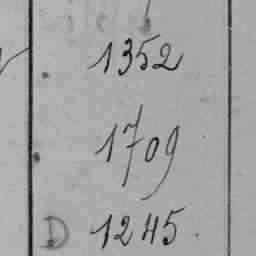 1352
1709
D 1245.